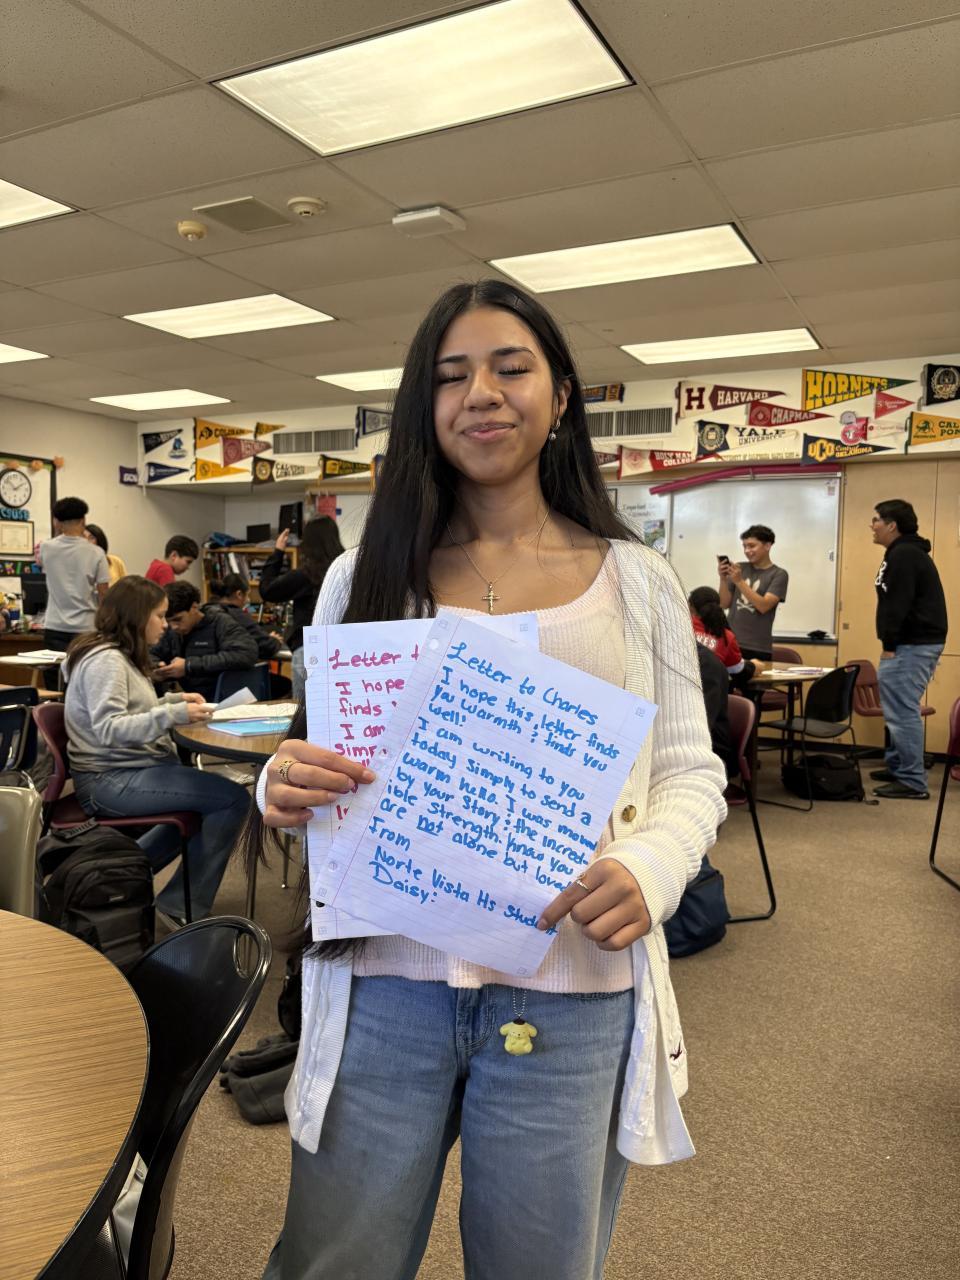 HORNETS
HARVARD
H
CHAPMAN
YALE
UNIVERSITY
HOLY NAMES
COLLEGE
UCO
Central
OKLAHOMA
CAL
Letter t
I hope
finds
I am
simp
Letter to Charles
I hope this letter finds
you warmth & finds you
well!
I am writing to you
today simply to send a
warm hello. I was moved
by your story & the incred-
ible strength. Know you
are not alone but loved
From
Norte Vista Hs student
Daisy: